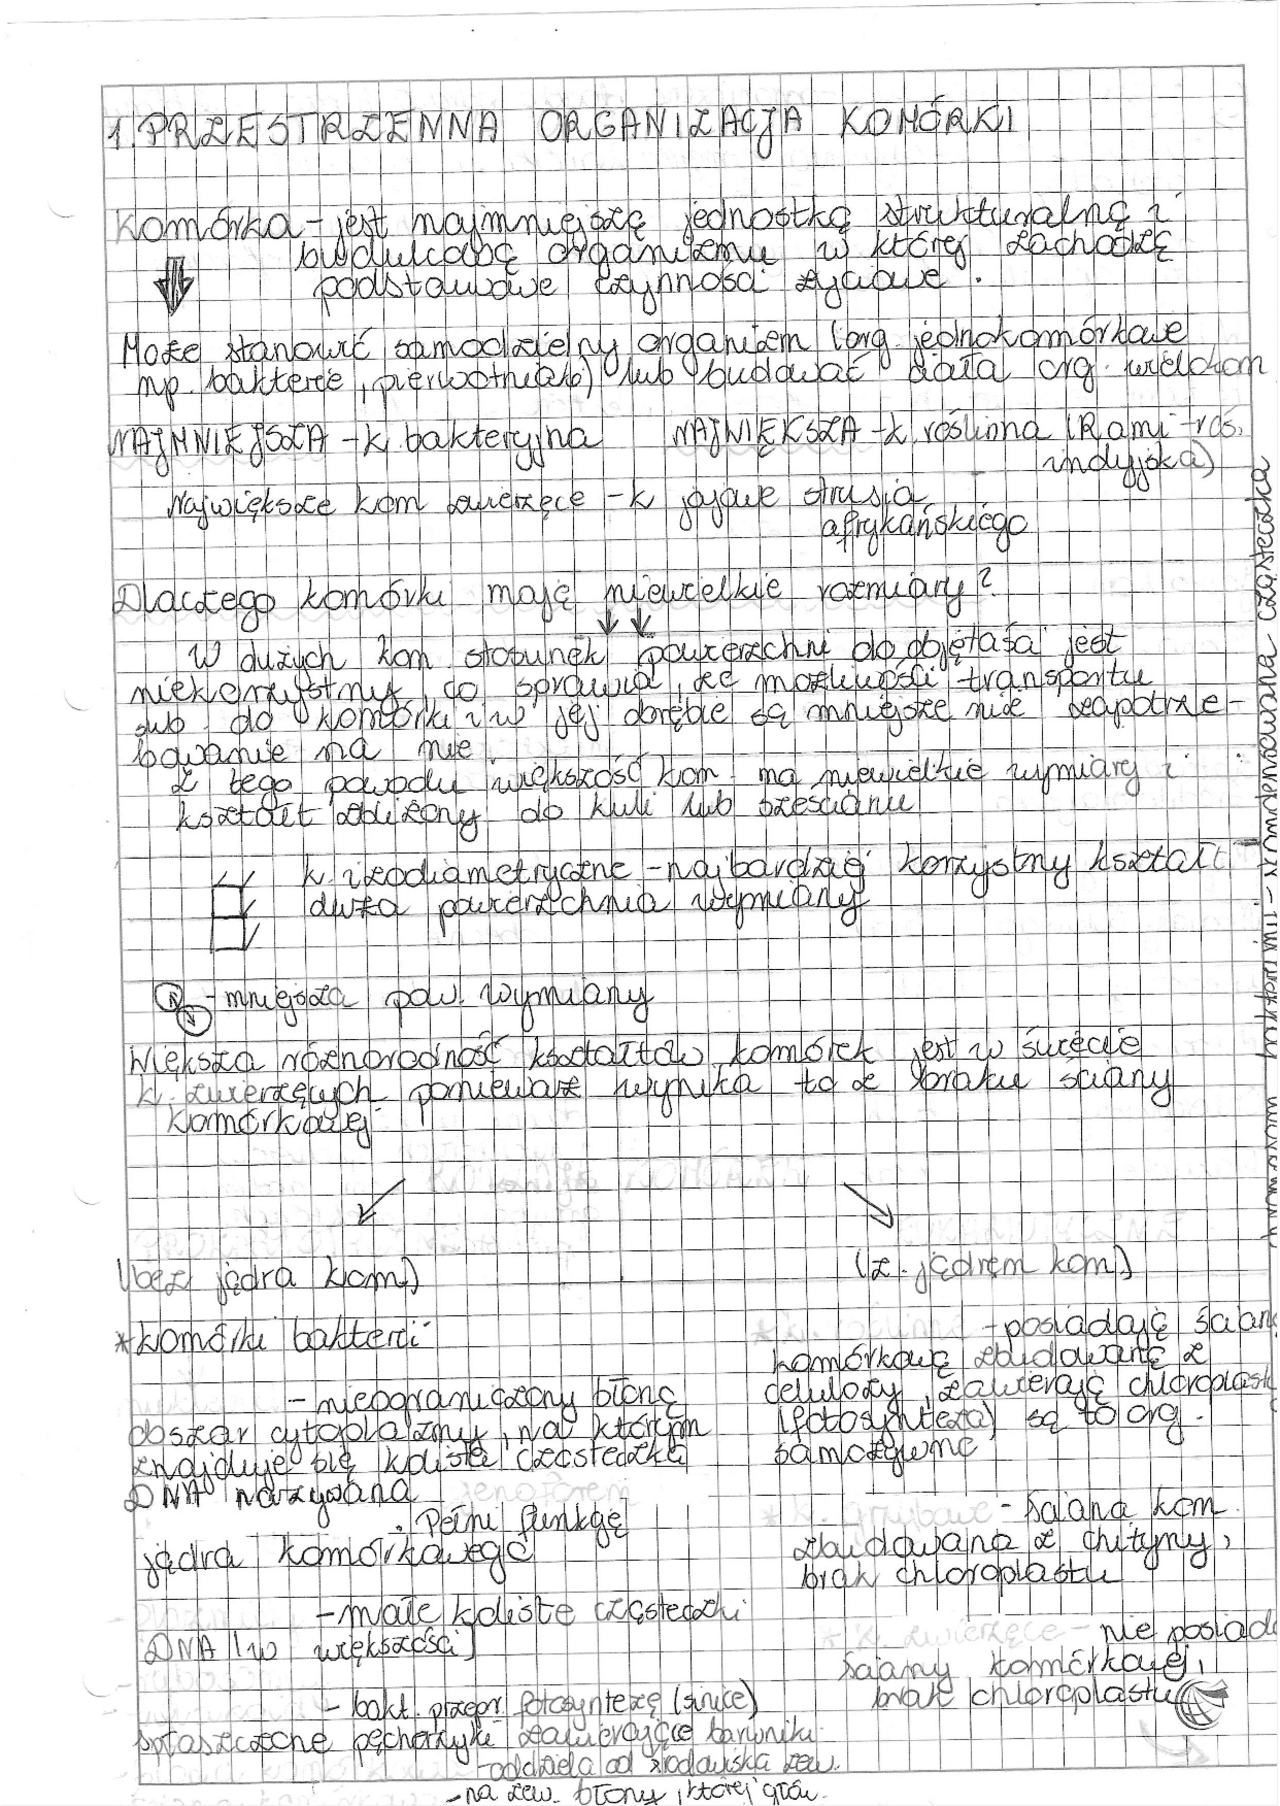 1. PRZESTRZENNA ORGANIZACJA KOMÓRKI
Komórka - jest najmniejszą jednostką strukturalną i
budulcową organizmu w której zachodzą
podstawowe czynności życiowe.
Może stanowić samodzielny organizm (org. jednokomórkowe
np. bakterie, pierwotniaki) lub budować ciała org. wielokom
NAJMNIEJSZA - k. bakteryjna NAJWIĘKSZA - k. roślinna (Rami - roś.
indyjska)
Największe kom zwierzęce - k jajowe strusia
afrykańskiego
Dlaczego komórki mają niewielkie rozmiary?
W dużych kom stosunek powierzchni do objętości jest
niekorzystny, co sprawia, że możliwości transportu
sub. do komórki i w jej obrębie są mniejsze niż zapotrze-
bowanie na nie.
Z tego powodu większość kom. ma niewielkie wymiary i
kształt zbliżony do kuli lub sześcianu
k. izodiametryczne - najbardziej korzystny kształt
duża powierzchnia wymiany
- mniejsza pow. wymiany
Większa różnorodność kształtów komórek jest w świecie
k. zwierzęcych ponieważ wynika to z braku ściany
komórkowej
(bez jądra kom.)
* komórki bakterii
- nieograniczony błoną
obszar cytoplazmy, na którym
znajduje się kolista cząsteczka
DNA nazywana genoforem
. Pełni funkcję
jądra komórkowego
- małe koliste cząsteczki
DNA (w większości)
- bakt. przepr. fotosyntezę (sinice)
spłaszczone pęcherzyki zawierające barwniki
- oddziela od środowiska zew.
- na zew. błony, której głów.
(z. jądrem kom.)
- posiadają ścian
komórkową zbudowaną z
celulozy, zawierają chloroplast
(fotosynteza) są to org.
samożywne
* k. grzybowe - ściana kom.
zbudowana z chityny,
brak chloroplastu
* k. zwierzęce - nie posiada
ściany komórkowej,
brak chloroplastu
skondensowana cząsteczka